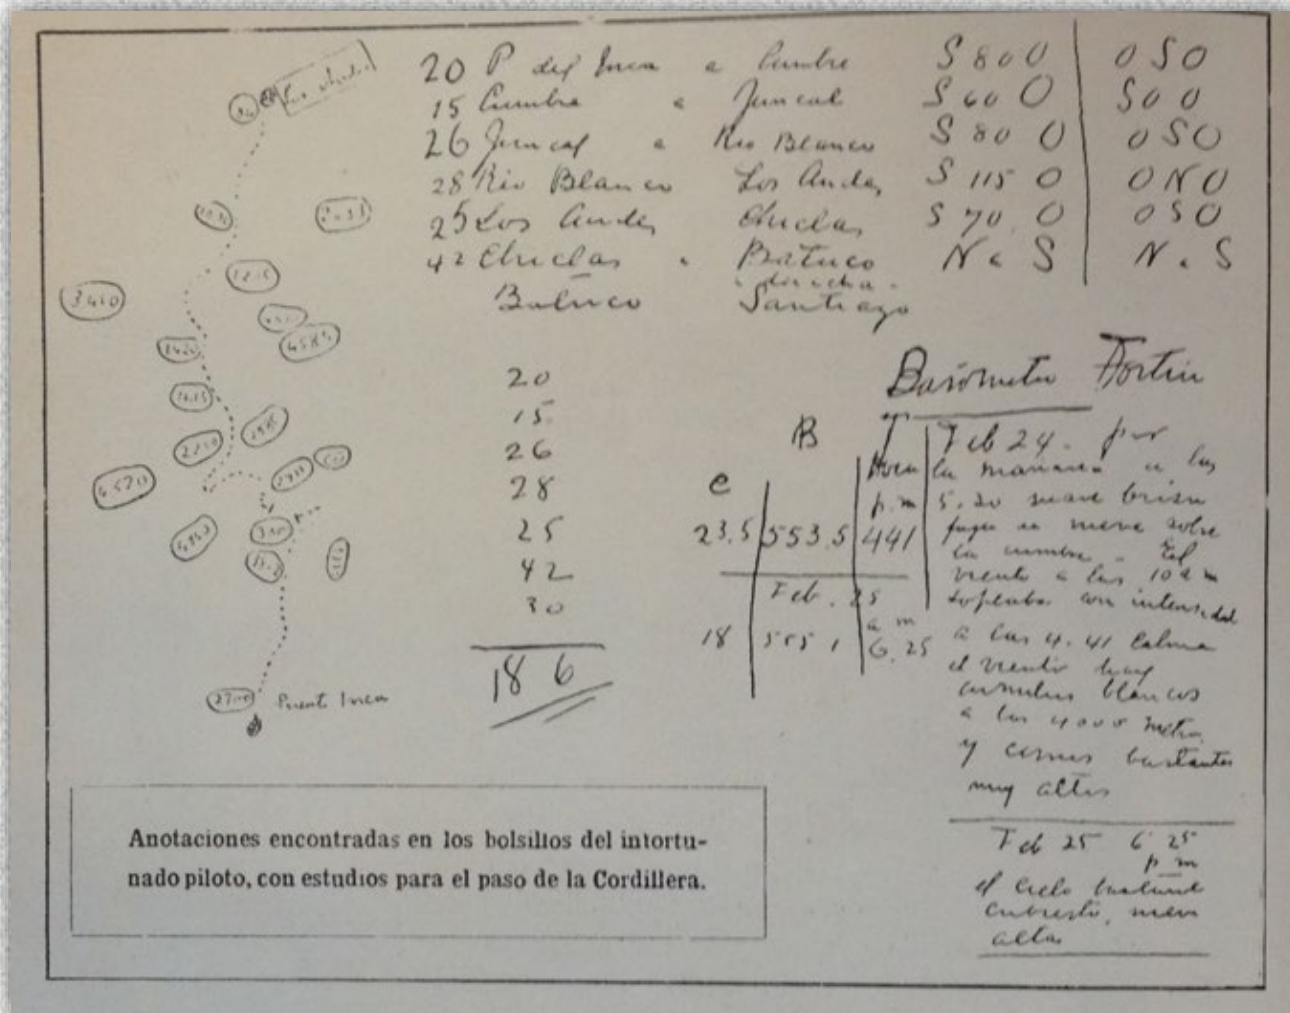 20 P del Inca a Cumbre S 80 O O S O
15 Cumbre a Juncal S 60 O S O O
26 Juncal a Rio Blanco S 80 O O S O
28 Rio Blanco Los Andes S 115 O O N O
25 Los Andes Chiclas S 70 O O S O
42 Chiclas a Batuco N a S N a S
Batuco derecha Santiago
20
15
26
28
25
42
30
18 6
3400
4585
2200
6520
2700 Puente Inca
Barómetro Fortin
C B T
Hora
p.m
23.5 553.5 441
Feb. 25
a m
18 555 1 6.25
Feb 24. por
la mañana a las
5.20 suave brisa
nieve sobre
la cumbre - El
viento a las 10 a m
soplaba con intensidad
a las 4.41 calma
el viento hay
cumulus blancos
a los 4000 metros
y cirrus bastantes
muy altos
Feb 25 6 25
p m
el cielo bastante
cubierto,
altas
Anotaciones encontradas en los bolsillos del infortu-
nado piloto, con estudios para el paso de la Cordillera.